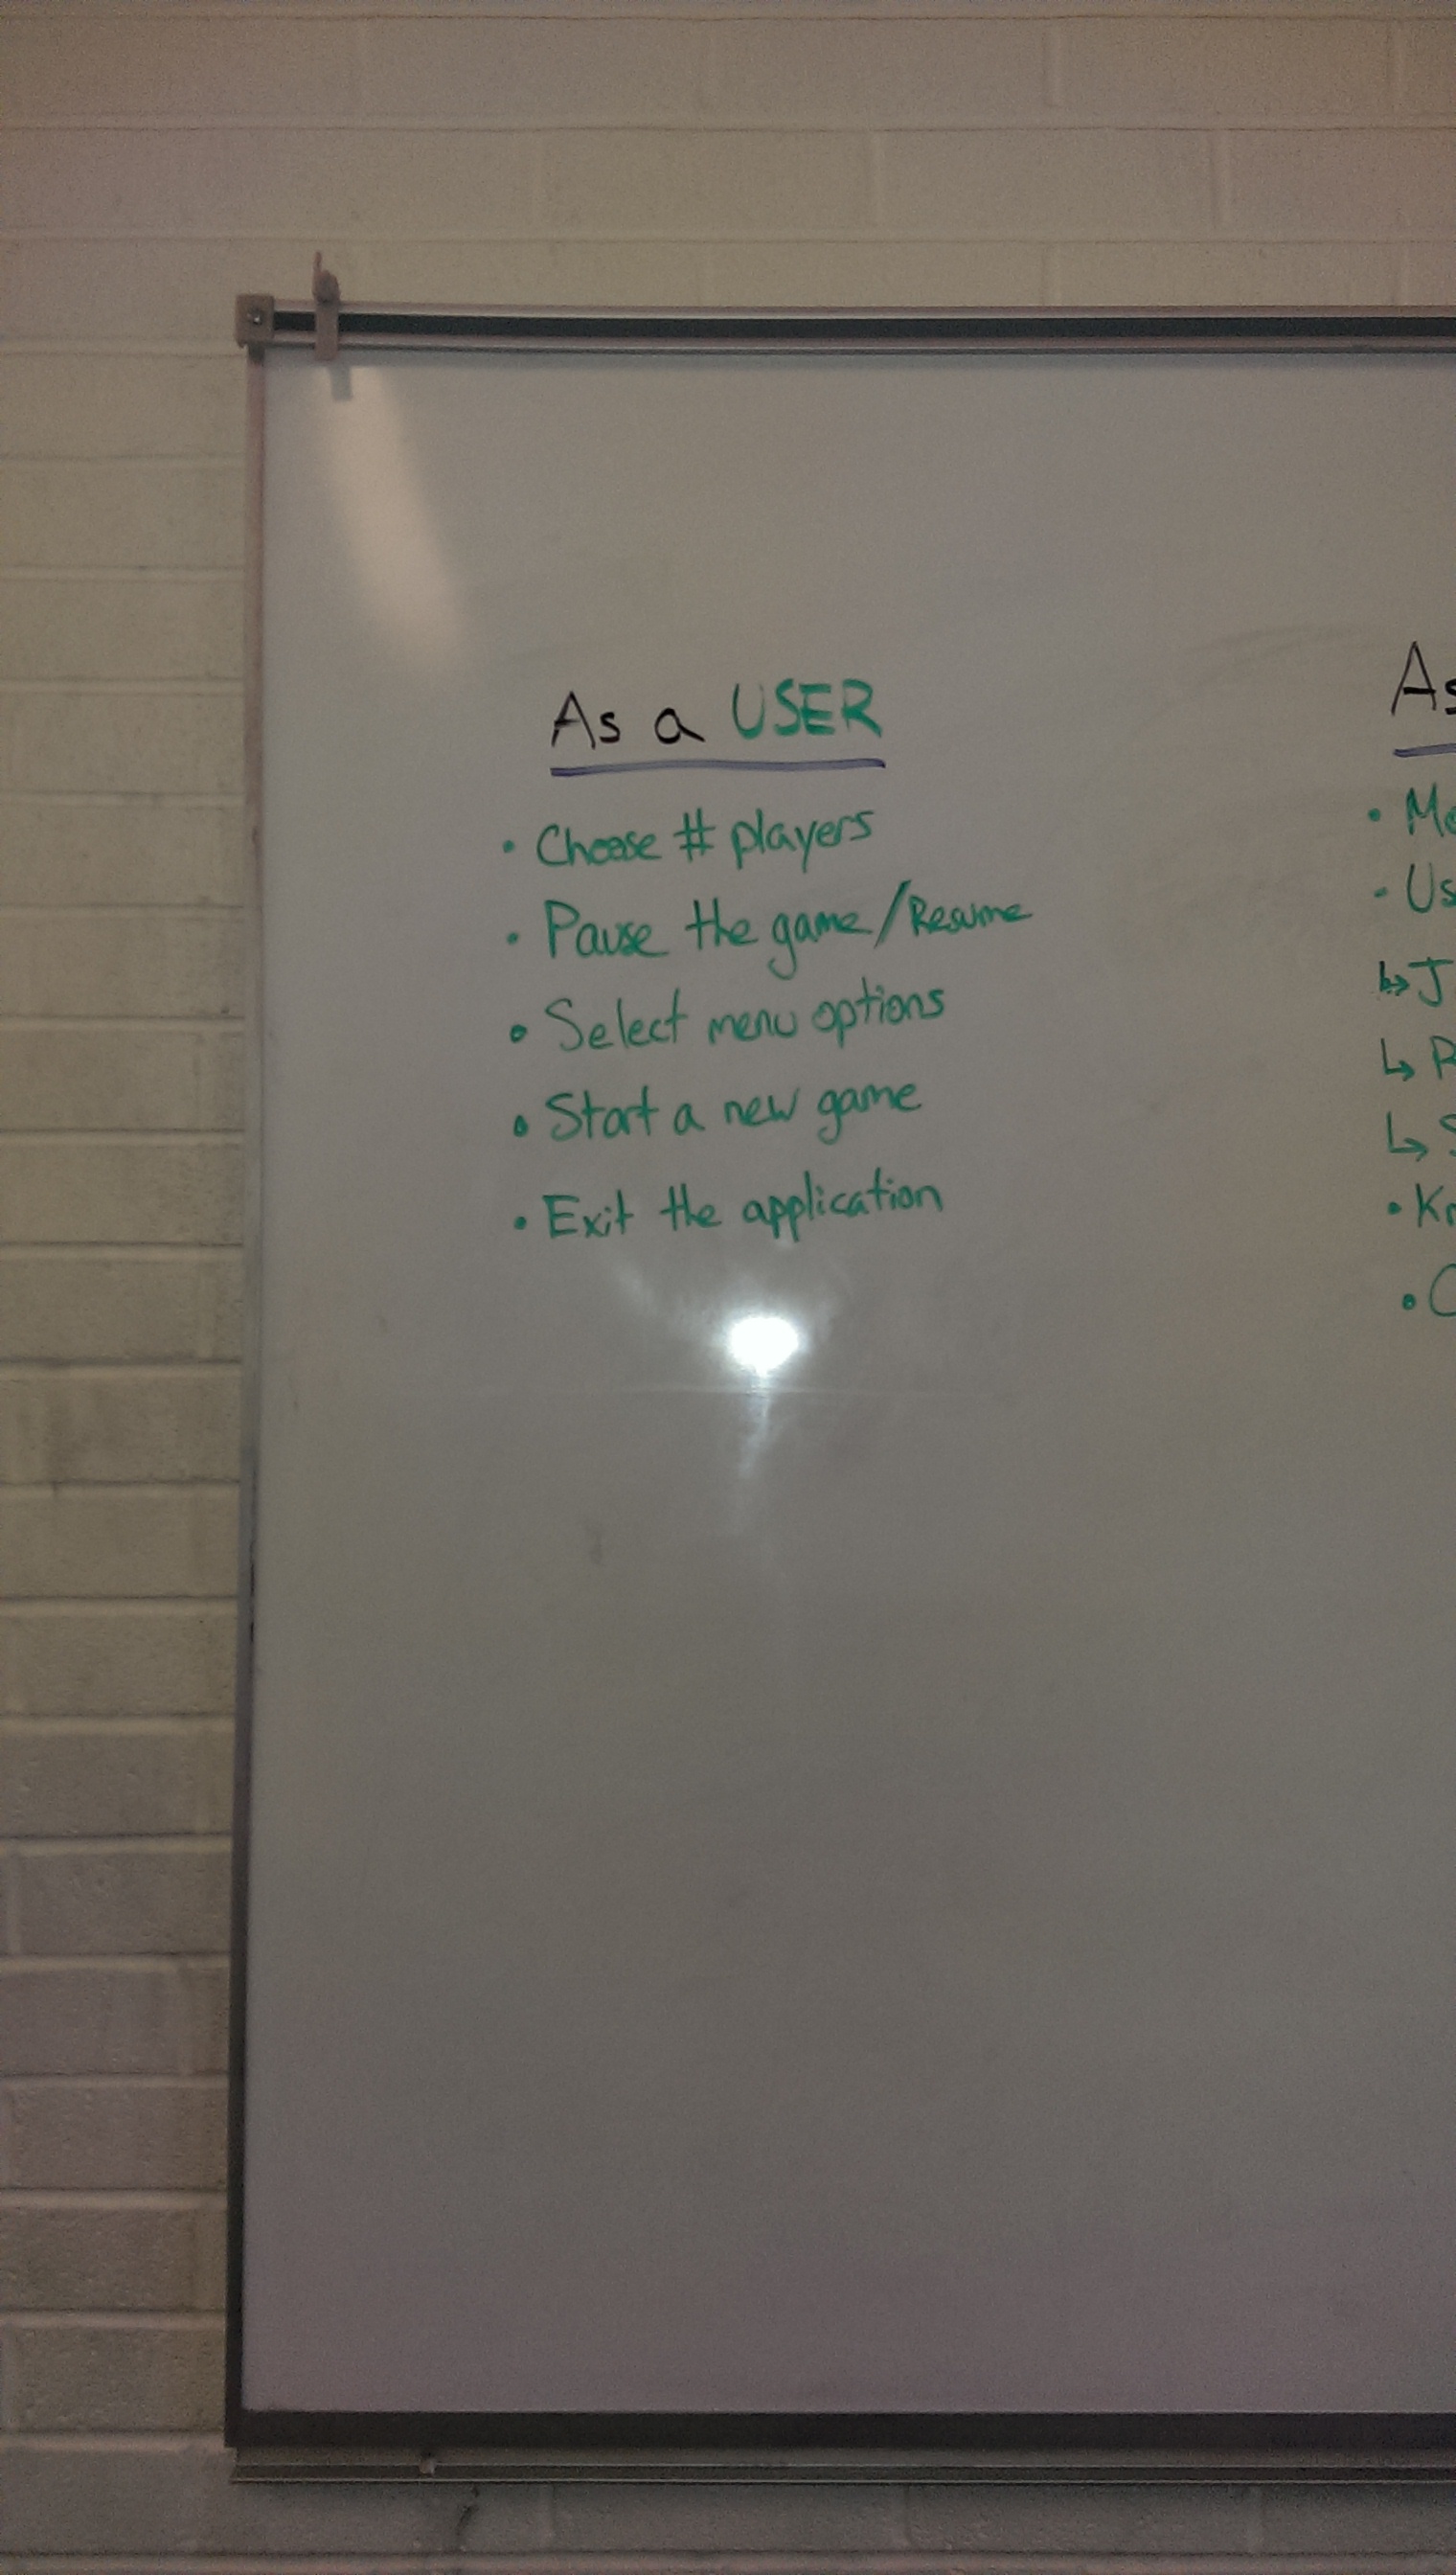 As a USER
• Choose # players
• Pause the game/Resume
• Select menu options
• Start a new game
• Exit the application
As